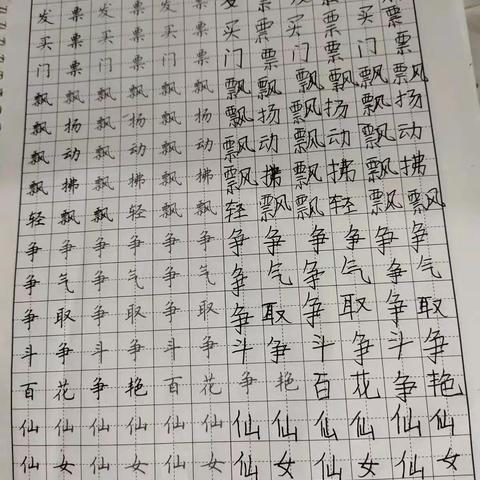 发票发票发票发票发票发票
买票买票买票买票买票买票
门票门票门票门票门票门票
飘飘飘飘飘飘飘飘飘飘飘飘
飘扬飘扬飘扬飘扬飘扬飘扬
飘动飘动飘动飘动飘动飘动
飘拂飘拂飘拂飘拂飘拂飘拂
轻飘飘轻飘飘轻飘飘轻飘飘
争争争争争争争争争争争争
争气争气争气争气争气争气
争取争取争取争取争取争取
斗争斗争斗争斗争斗争斗争
百花争艳百花争艳百花争艳
仙仙仙仙仙仙仙仙仙仙仙仙
仙女仙女仙女仙女仙女仙女